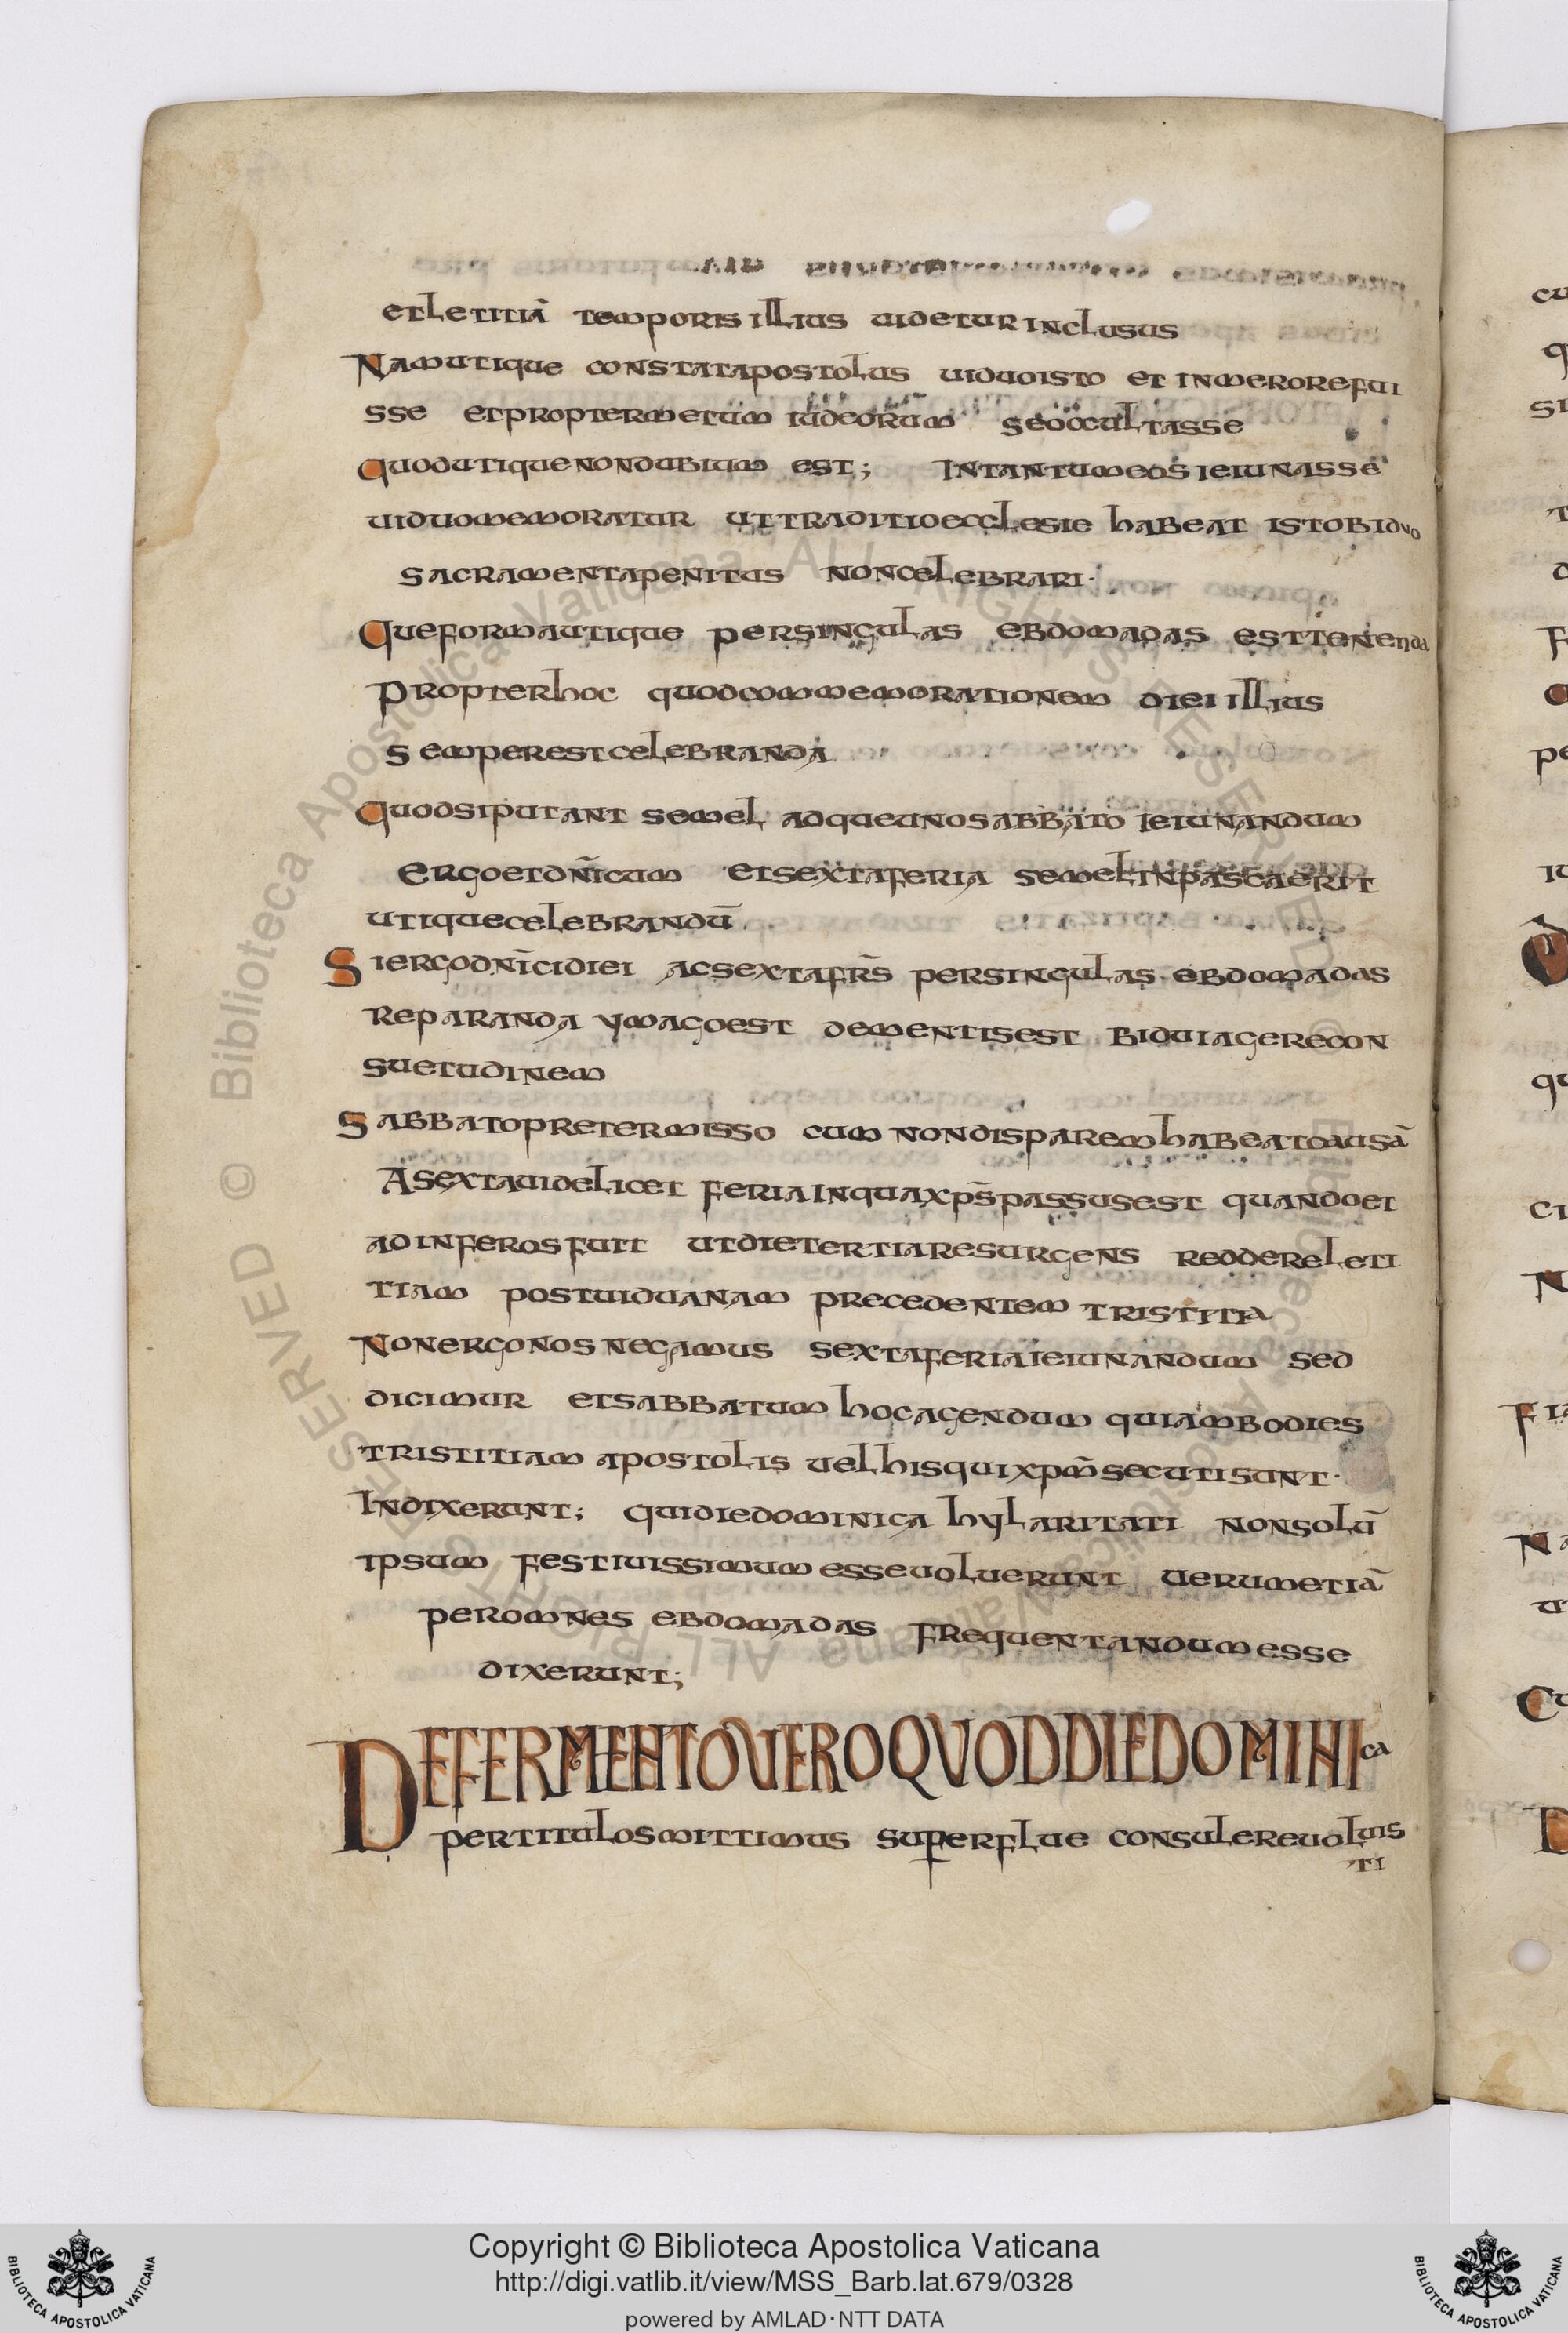 et letitiā temporis illius uidetur inclusus
Nam utique constat apostolus uiduo isto et in merore fui
sse et propter metum iudeorum se occultasse
quod utique non dubium est; In tantum eos ieiunasse
uiduo memoratur ut traditio ecclesie habeat isto biduo
sacramenta penitus non celebrari·
Que forma utique per singulas ebdomadas est tenenda
propter hoc quod commemorationem diei illius
semper est celebranda
Quod si putant semel adque uno sabbato ieiunandum
Ergo et dn̄icum et sexta feria semel in pasca erit
utique celebrandū
Si ergo dn̄ici diei ac sexta frs̄ per singulas ebdomadas
reparanda ymago est dementis est bidui agere con
suetudinem
Sabbato pretermisso cum non disparem habeat causā
A sexta uidelicet feria in qua xps̄ passus est quando et
ad inferos fuit ut die tertia resurgens reddere leti
tiam post uiduanam precedentem tristitia
Non ergo nos negamus sexta feria ieiunandum sed
dicimur et sabbatum hoc agendum quia ambo dies
tristitiam apostolis uel his qui xpm̄ secuti sunt·
Indixerunt; qui die dominica hylaritati non solū
ipsum festiuissimum esse uoluerunt uerum etiā
per omnes ebdomadas frequentandum esse
dixerunt;
DE FERMENTO VERO QVOD DIE DOMINICA
per titulos mittimus superflue consulere uoluis
ti
© Biblioteca Apostolica Vaticana ALL RIGHTS RESERVED
Copyright © Biblioteca Apostolica Vaticana
http://digi.vatlib.it/view/MSS_Barb.lat.679/0328
powered by AMLAD·NTT DATA
BIBLIOTECA APOSTOLICA VATICANA
BIBLIOTECA APOSTOLICA VATICANA